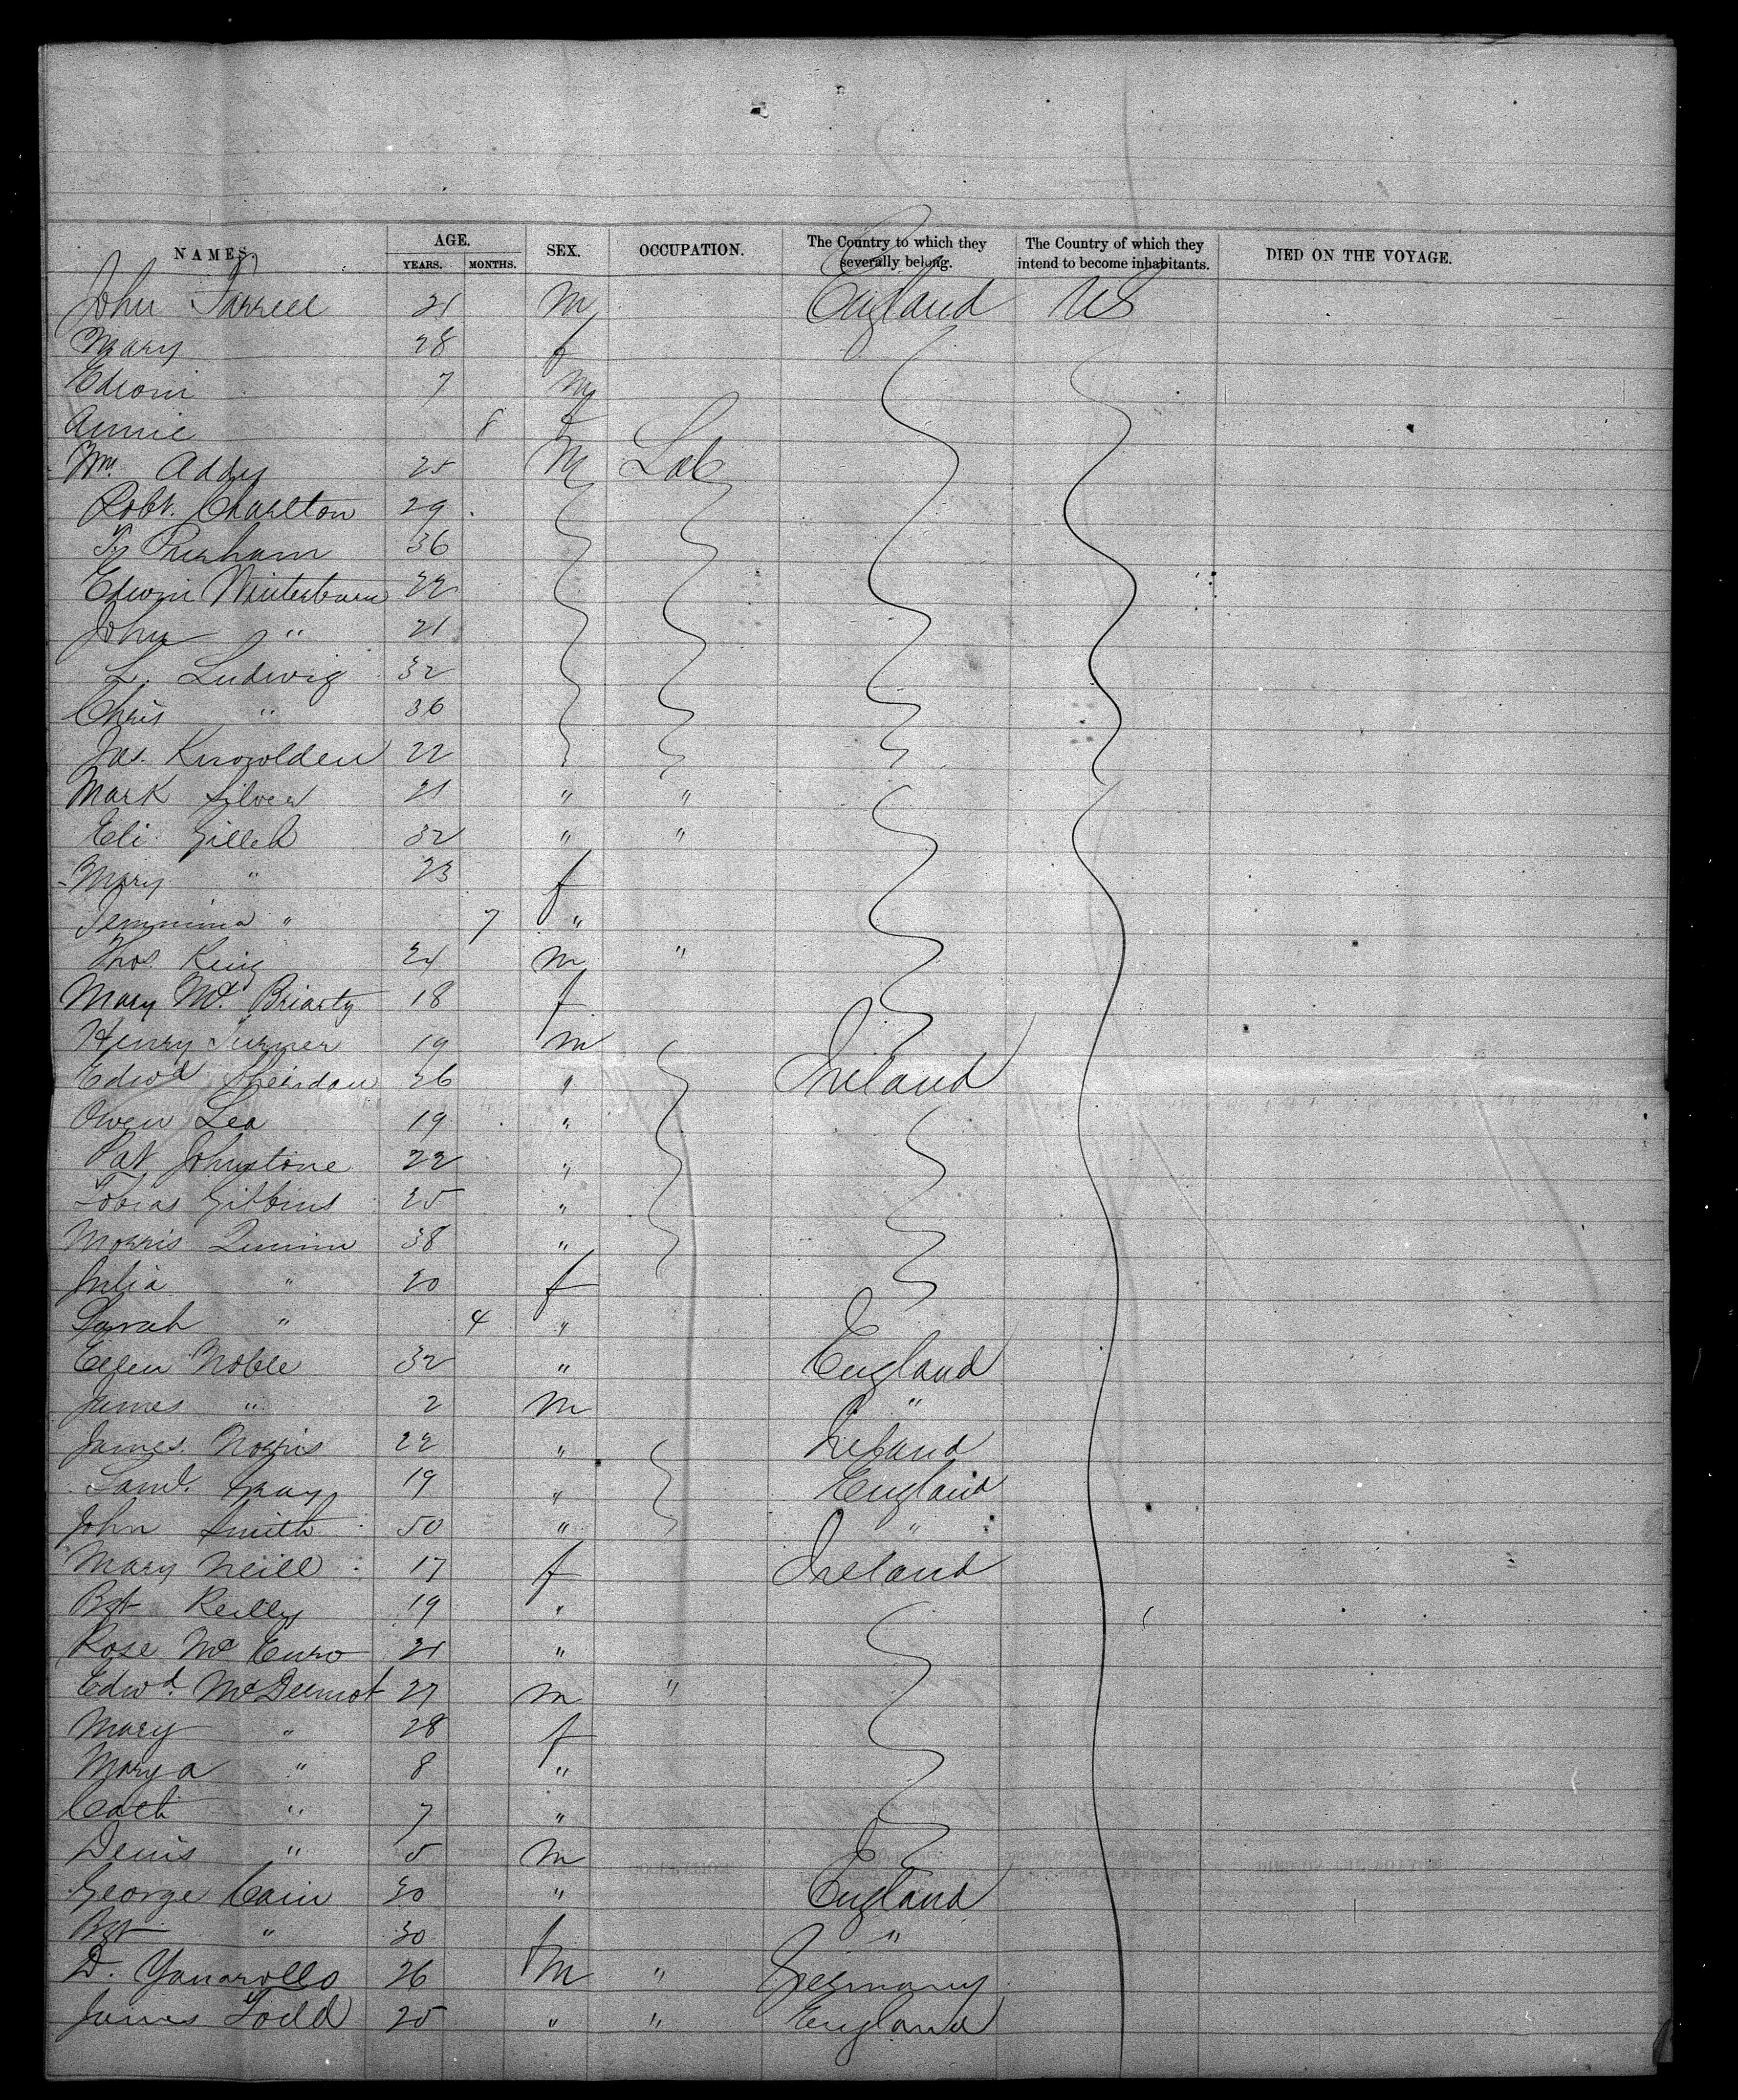 NAMES. AGE. SEX. OCCUPATION. The Country to which they severally belong. The Country of which they intend to become inhabitants. DIED ON THE VOYAGE.
YEARS. MONTHS.
John Farrell 21 m England US
Mary 28 f
Edwin 7 m
Annie 8 f
Wm. Addy 25 M Lab
Robt. Charlton 29
36
Edwin Winterburn 22
John " 21
L. Ludwig 32
Chris " 36
Jas. Knowlden 22
Mark Silver 21 " "
Eli 32 " "
Mary " 23 f
Jemmima " 7 "
Thos. King 24 m "
Mary Mc Briarty 18 f
Henry Turner 19 m
Edwd Sheridan 26 " Ireland
Owen Lea 19 "
Pat Johnstone 22 "
Tobias Gibbins 25 "
Morris Quinn 38 "
Julia " 20 f
Sarah " 4 "
Ellen Noble 32 " England
James " 2 m "
James Norris 22 " Ireland
Saml. Gray 19 " England
John Smith 50 " "
Mary Neill 17 f Ireland
Bgt Reilly 19 "
Rose Mc 21 "
Edwd. McDermot 27 m "
Mary " 28 f
Mary a " 8 "
Cath " 7 "
Denis " 5 m
George Cain 30 " England
Bgt " 30 f "
D. Yanarollo 26 m " Germany
James Todd 25 " " England